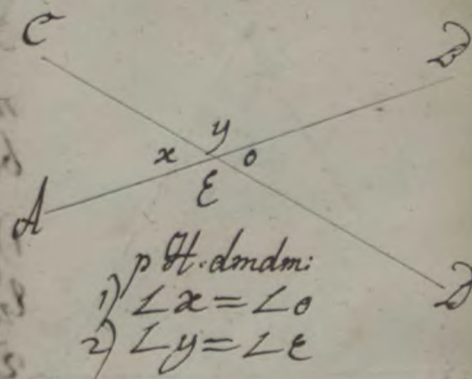 C
B
y
x o
ε
A
p H. dmdm:
1) ∠x=∠o
2) ∠y=∠ε
D